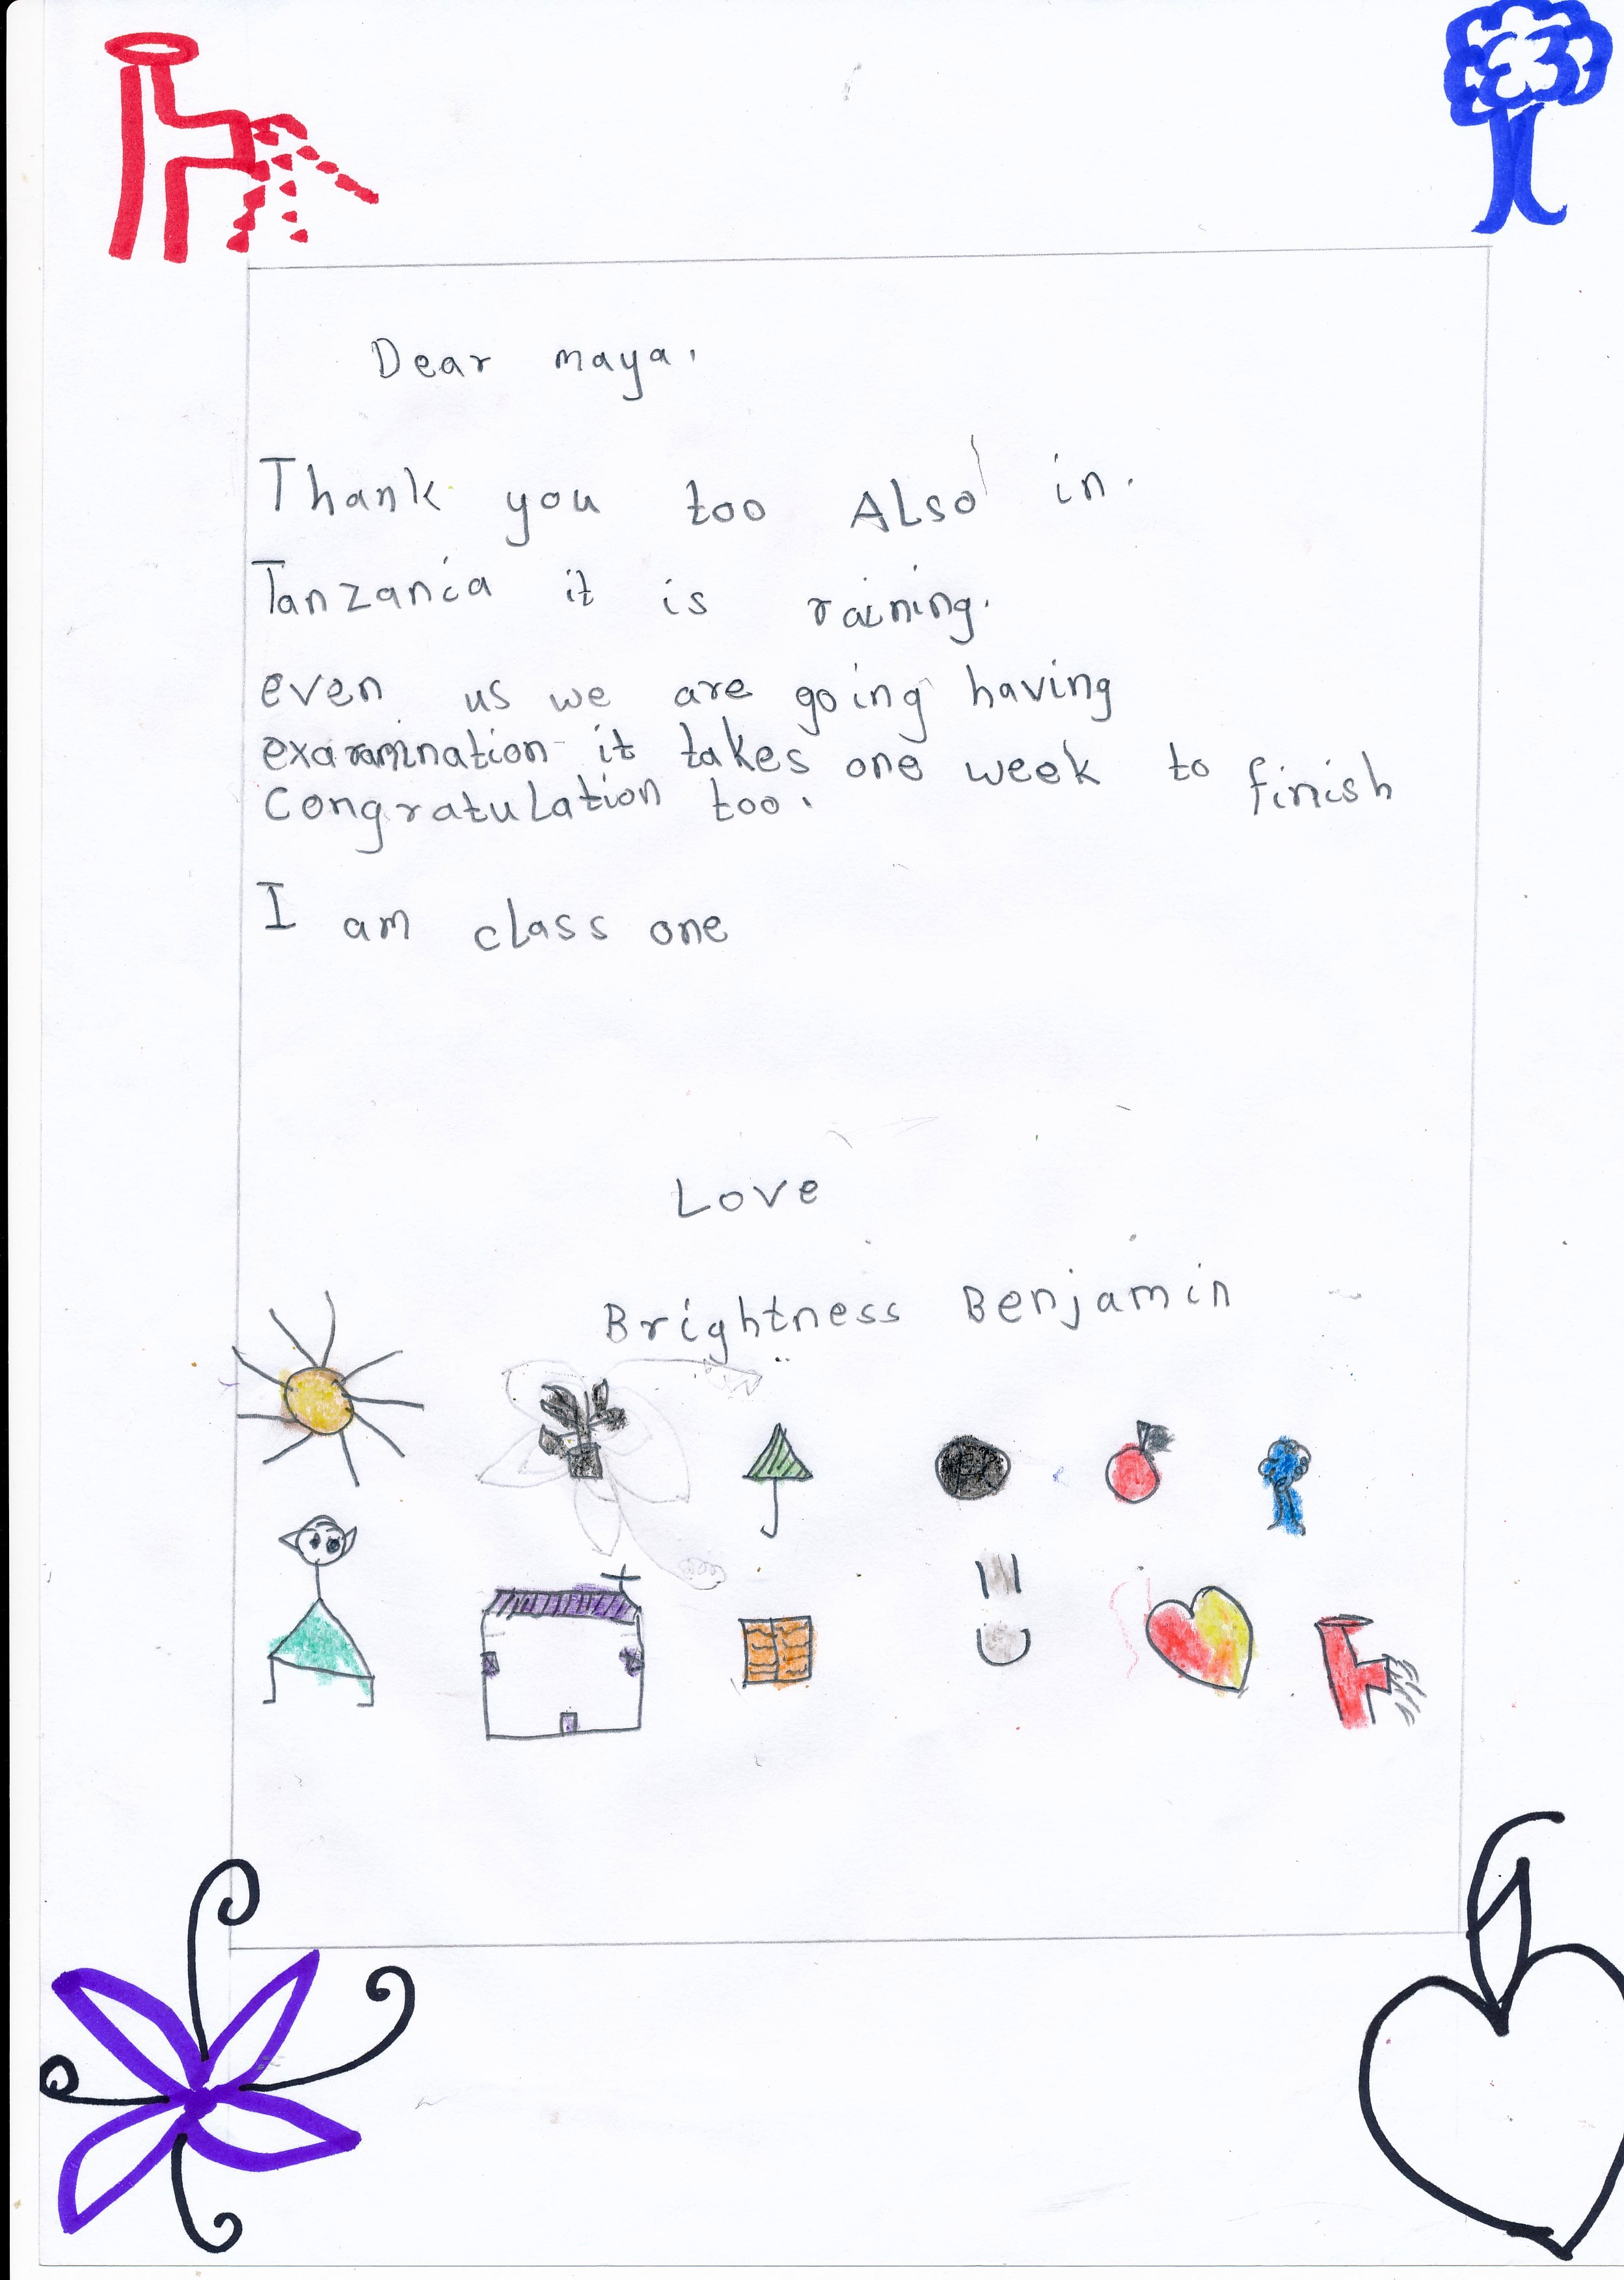 Dear maya.
Thank you too ALso in.
Tanzania it is raining.
even us we are going having
examination it takes one week to finish
CongratuLation too.
I am class one
Love
Brightness Benjamin